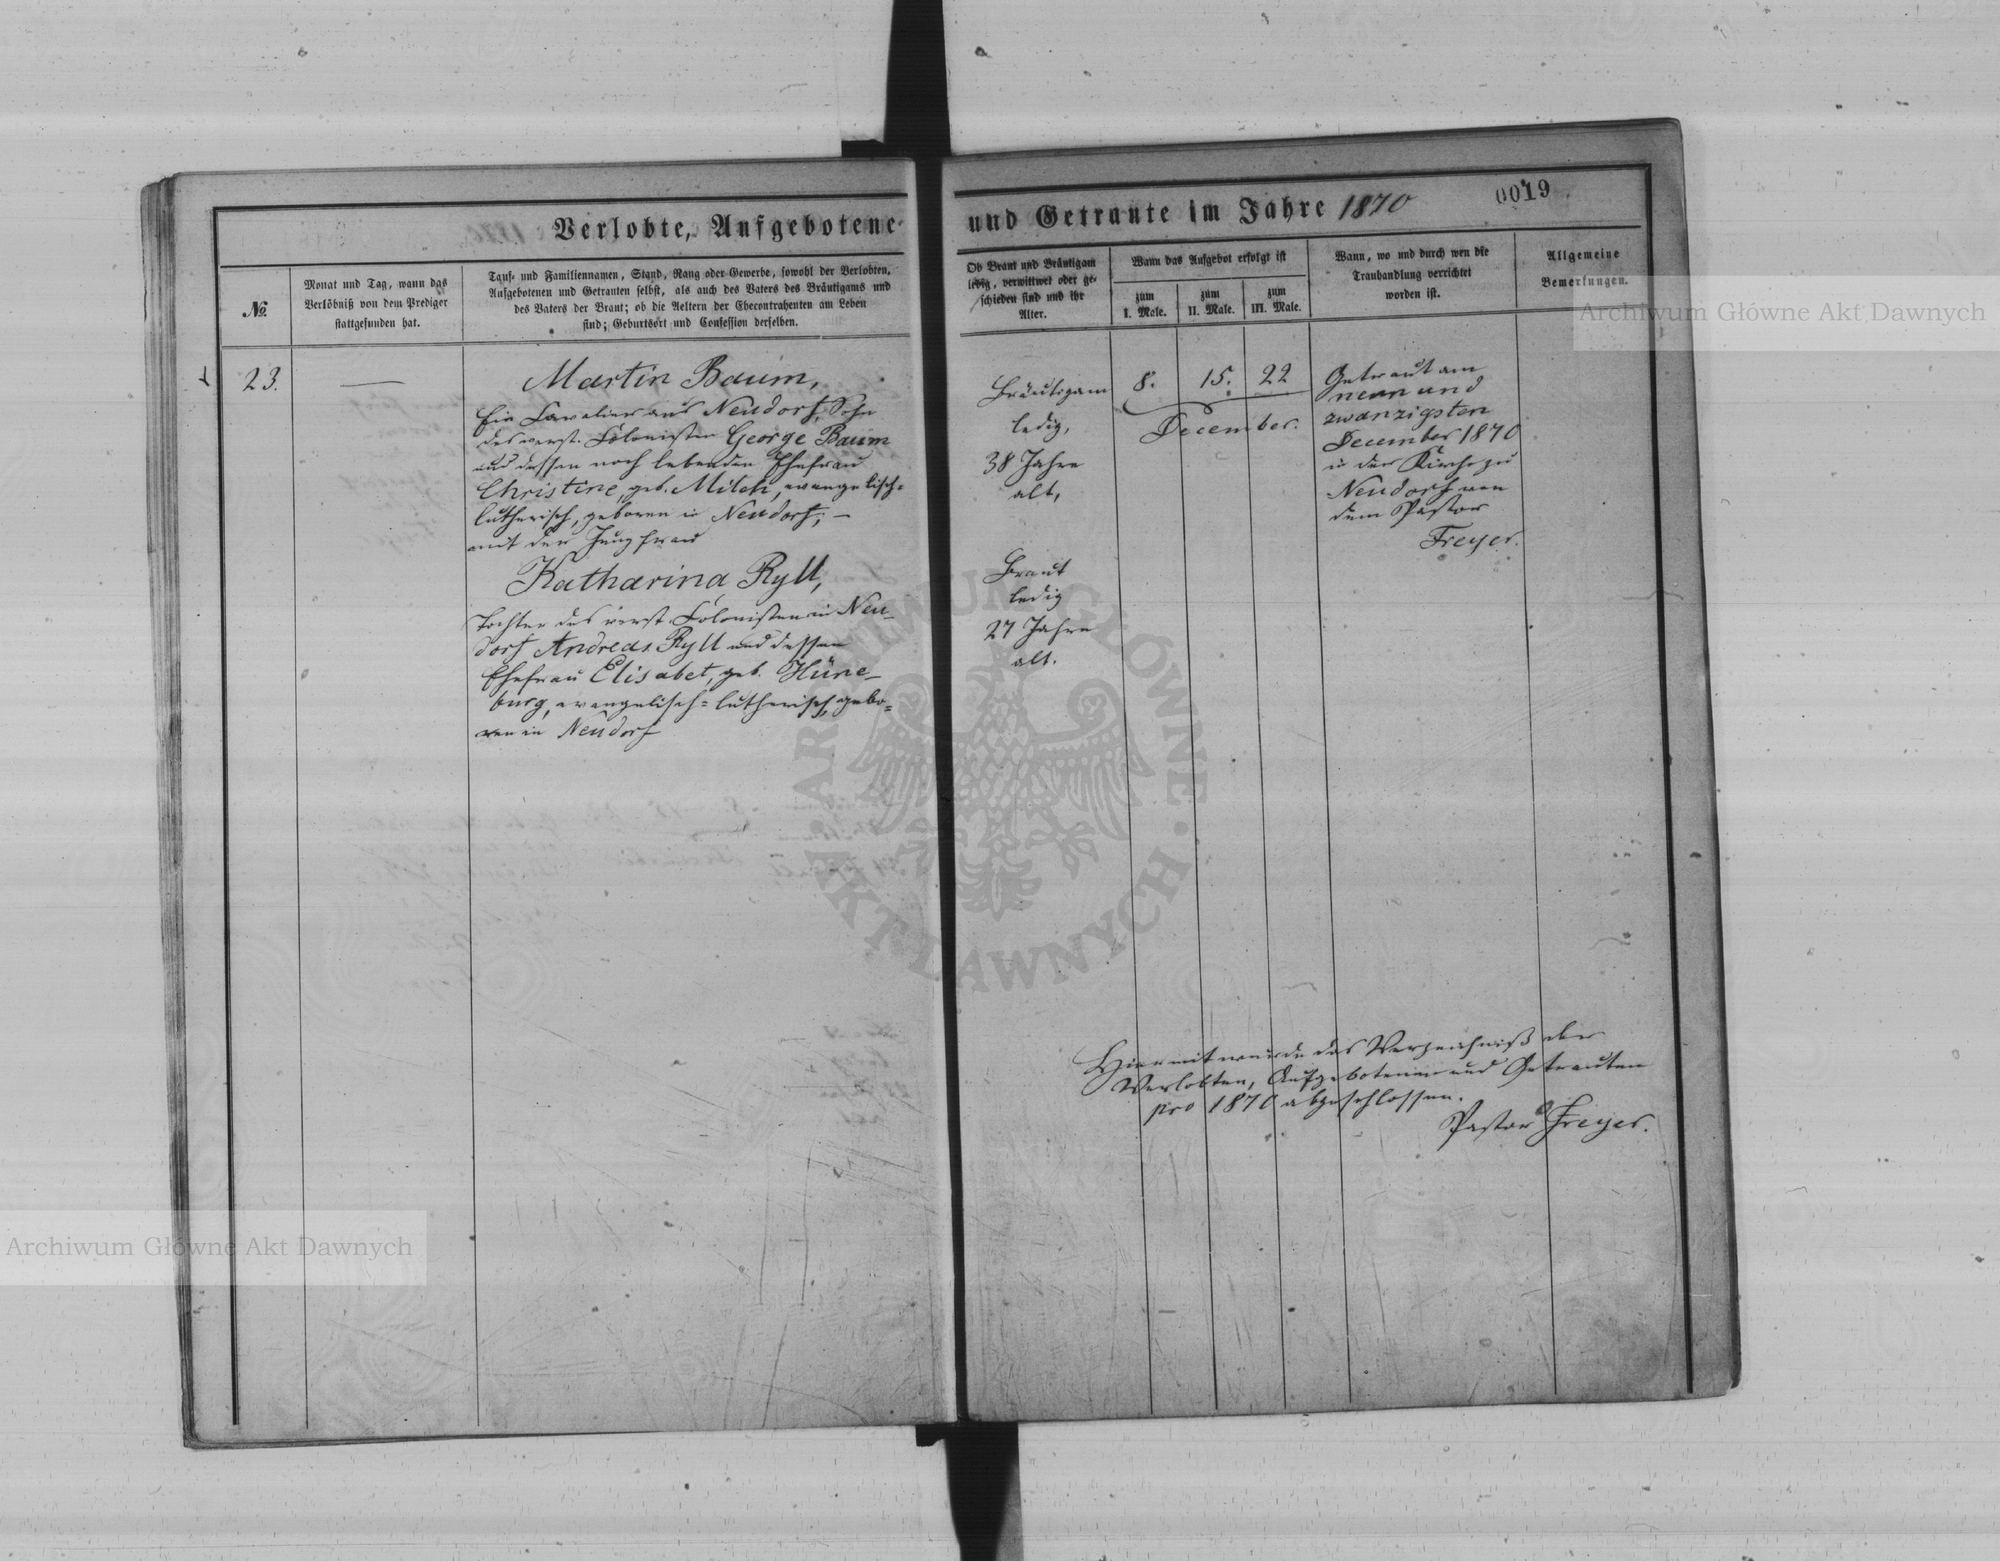 Verlobte, Aufgebotene und Getraute im Jahre 1870
0019
№
Monat und Tag, wann das
Verlöbniß von dem Prediger
stattgefunden hat.
Tauf- und Familiennamen, Stand, Rang oder Gewerbe, sowohl der Verlobten,
Aufgebotenen und Getrauten selbst, als auch des Vaters des Bräutigams und
des Vaters der Braut; ob die Aeltern der Ehecontrahenten am Leben
sind; Geburtsort und Confession derselben.
Ob Braut und Bräutigam
ledig, verwittwet oder ge-
schieden sind und ihr
Alter.
Wann das Aufgebot erfolgt ist
zum
I. Male.
zum
II. Male.
zum
III. Male.
Wann, wo und durch wen die
Trauhandlung verrichtet
worden ist.
Allgemeine
Bemerkungen.
23.
Martin Baum,
Ein Cavalier aus Neudorf, Sohn
des verst. Colonisten George Baum
und dessen noch lebenden Ehefrau
Christine, geb. Milch, evangelisch-
lutherisch, geboren in Neudorf; –
mit der Jungfrau
Katharina Ryll,
Tochter des verst. Colonisten in Neu-
dorf Andreas Ryll und dessen
Ehefrau Elisabet, geb. Hüne-
burg, evangelisch-lutherisch, gebo-
ren in Neudorf
Bräutigam
ledig,
38 Jahre
alt,
Braut
ledig
27 Jahre
alt.
8. 15. 22
December.
Getraut am
neun und
zwanzigsten
December 1870
in der Kirche zu
Neudorf von
dem Pastor
Freyer.
Hiermit wurde das Verzeichniß der
Verlobten, Aufgebotenen und Getrauten
pro 1870 abgeschlossen.
Pastor Freyer.
Archiwum Główne Akt Dawnych
ARCHIWUM GŁÓWNE
AKT DAWNYCH
Archiwum Główne Akt Dawnych